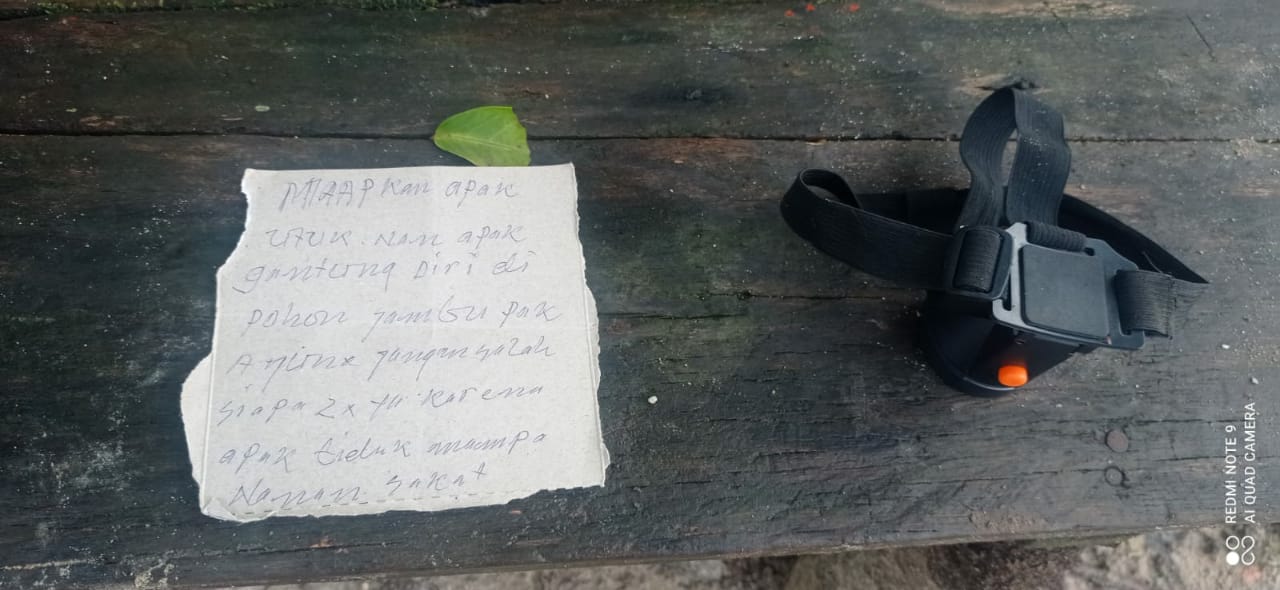 MAAPKan apak
UTUK. Nan apak
guntung Diri di
pohon jambu pak
jangan salah
siapa 2x ya karena
apak tiduk mampa
Nahan sakat
REDMI NOTE 9
AI QUAD CAMERA